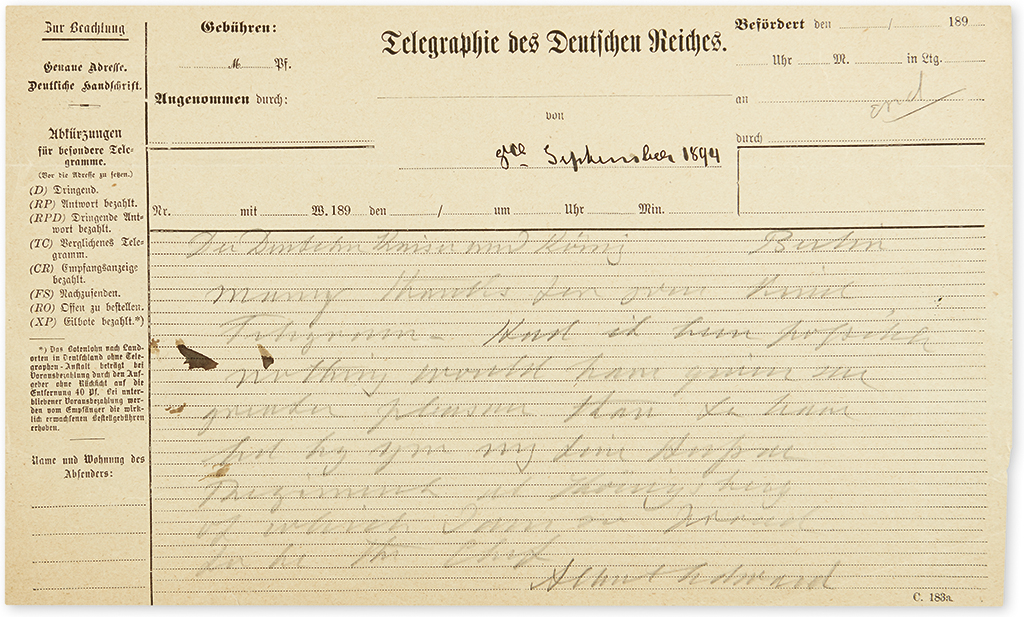 Zur Beachtung
Genaue Adresse.
Deutliche Handschrift.
Abkürzungen
für besondere Tele-
gramme.
(Vor die Adresse zu setzen.)
(D) Dringend.
(RP) Antwort bezahlt.
(RPD) Dringende Ant-
wort bezahlt.
(TC) Verglichenes Tele-
gramm.
(CR) Empfangsanzeige
bezahlt.
(FS) Nachzusenden.
(RO) Offen zu bestellen.
(XP) Eilbote bezahlt.*)
*) Das Botenlohn nach Land-
orten in Deutschland ohne Tele-
graphen-Anstalt beträgt bei
Vorausbezahlung durch den Auf-
geber ohne Rücksicht auf die
Entfernung 40 Pf. Bei unter-
bliebener Vorausbezahlung wer-
den vom Empfänger die wirk-
lich erwachsenen Bestellgebühren
erhoben.
Name und Wohnung des
Absenders:
Gebühren:
M Pf.
Angenommen durch:
Telegraphie des Deutschen Reiches.
von
September 1894
Befördert den / 189
Uhr M. in Ltg.
an
durch
Nr. mit W. 189 den / um Uhr Min.
Kaiser und König Berlin
Many thanks for your kind
Telegram - Had it been possible
nothing would have given me
greater pleasure than to have
led by you my fine Hussar
Regiment at Königsberg
of which I am so proud
to be the Chef
Albert Edward
C. 183a.